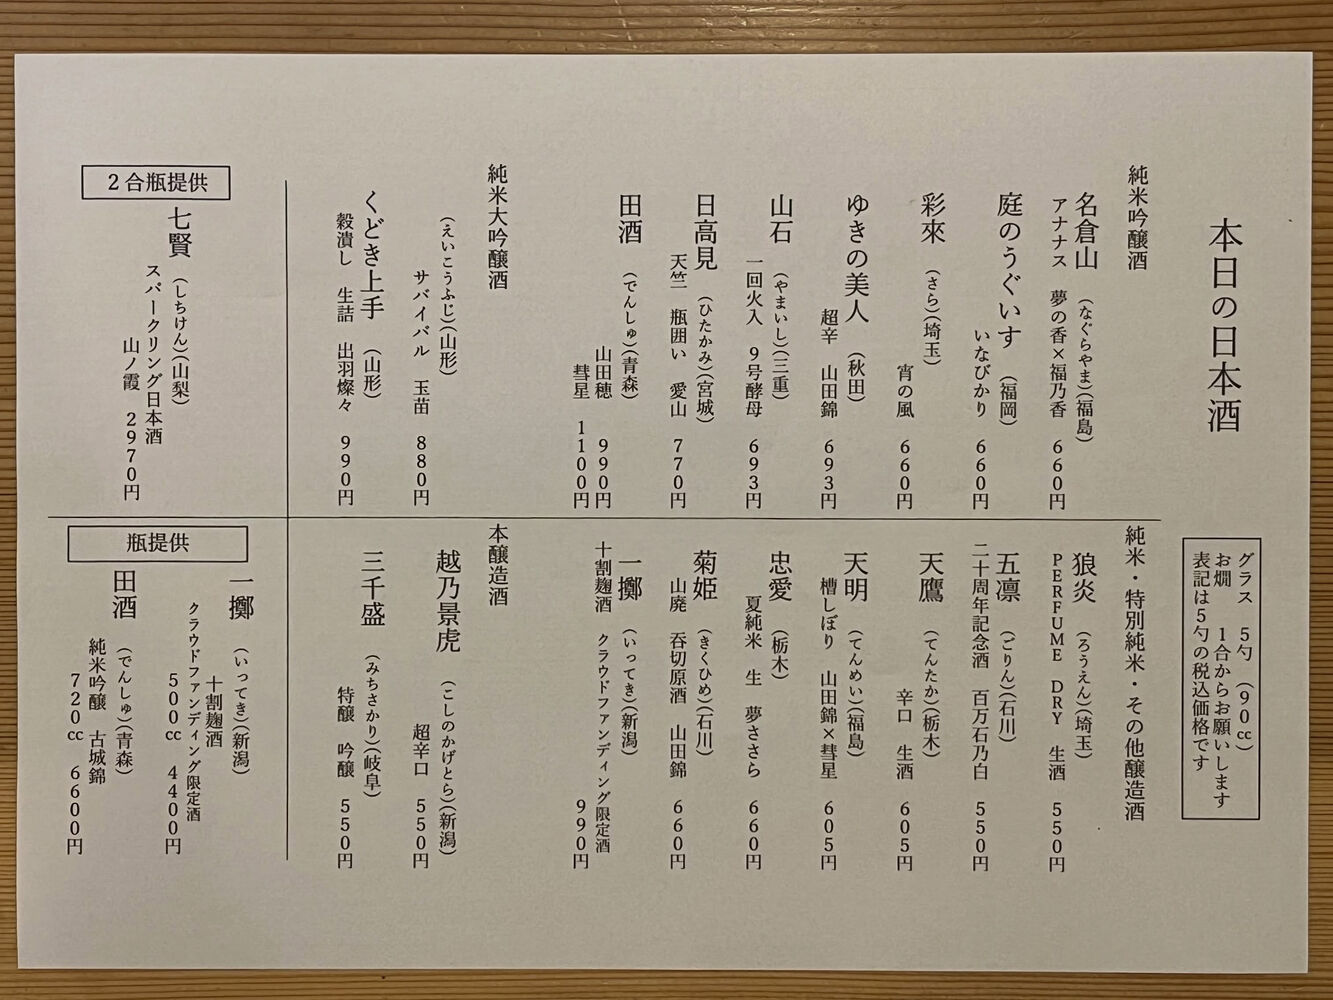 本日の日本酒
グラス 5勺 (90cc)
お燗 1合からお願いします
表記は5勺の税込価格です
純米吟醸酒
名倉山 (なぐらやま)(福島)
アナナス 夢の香×福乃香 660円
庭のうぐいす (福岡)
いなびかり 660円
彩來 (さら)(埼玉)
宵の風 660円
ゆきの美人 (秋田)
超辛 山田錦 693円
山石 (やまいし)(三重)
一回火入 9号酵母 693円
日高見 (ひたかみ)(宮城)
天竺 瓶囲い 愛山 770円
田酒 (でんしゅ)(青森)
山田穂 990円
彗星 1100円
純米大吟醸酒
(えいこうふじ)(山形)
サバイバル 玉苗 880円
くどき上手 (山形)
穀潰し 生詰 出羽燦々 990円
純米・特別純米・その他醸造酒
狼炎 (ろうえん)(埼玉)
PERFUME DRY 生酒 550円
五凛 (ごりん)(石川)
二十周年記念酒 百万石乃白 550円
天鷹 (てんたか)(栃木)
辛口 生酒 605円
天明 (てんめい)(福島)
槽しぼり 山田錦×彗星 605円
忠愛 (栃木)
夏純米 生 夢ささら 660円
菊姫 (きくひめ)(石川)
山廃 呑切原酒 山田錦 660円
一擲 (いってき)(新潟)
十割麹酒 クラウドファンディング限定酒
990円
本醸造酒
越乃景虎 (こしのかげとら)(新潟)
超辛口 550円
三千盛 (みちさかり)(岐阜)
特醸 吟醸 550円
2合瓶提供
七賢 (しちけん)(山梨)
スパークリング日本酒
山ノ霞 2970円
瓶提供
一擲 (いってき)(新潟)
十割麹酒
クラウドファンディング限定酒
500cc 4400円
田酒 (でんしゅ)(青森)
純米吟醸 古城錦
720cc 6600円